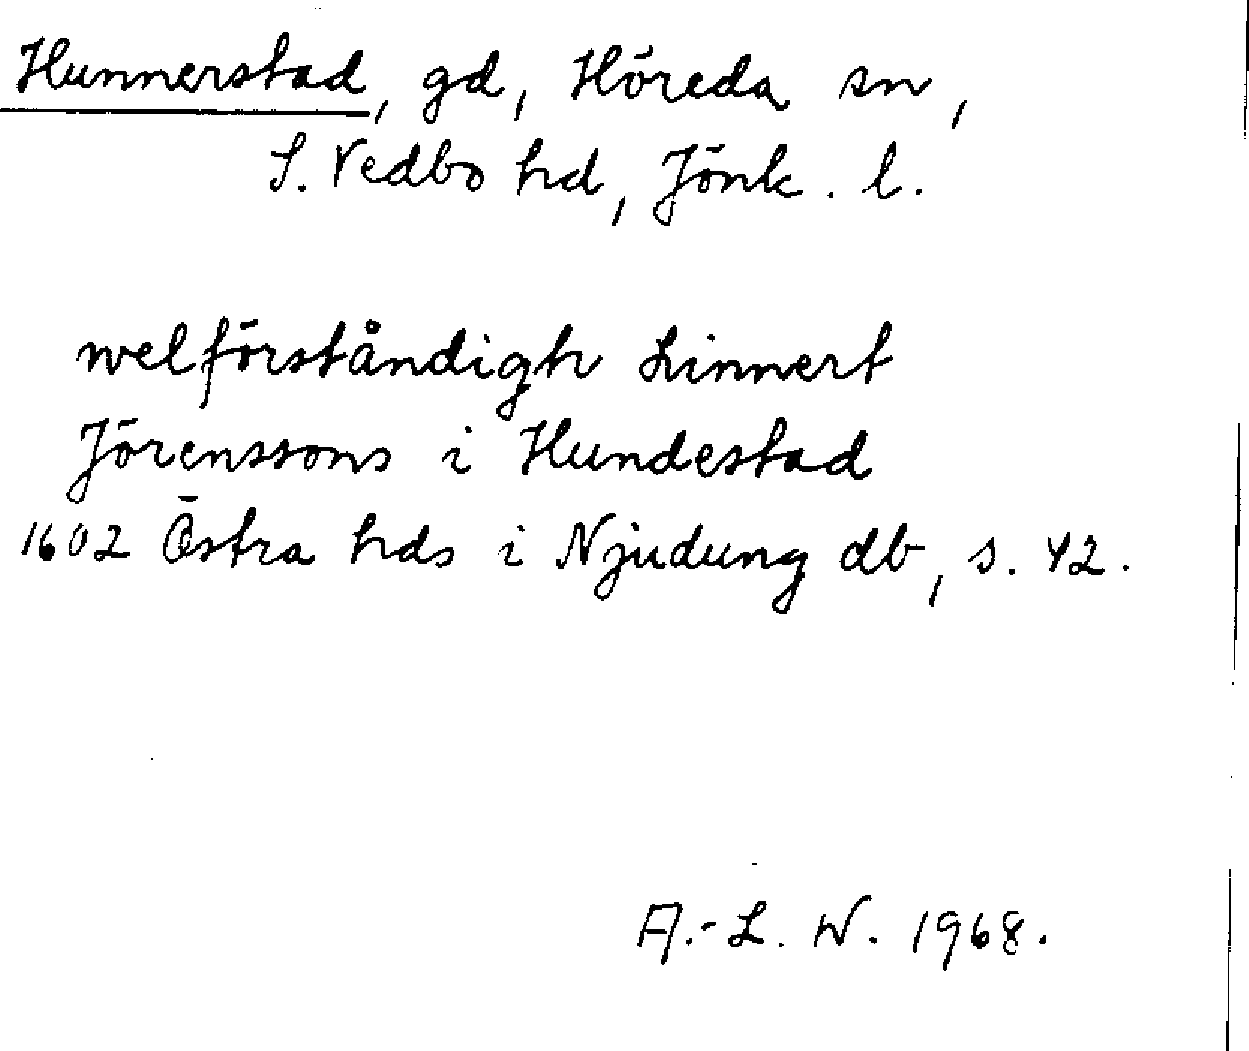 Hunnerstad, gd, Höreda sn,
S. Vedbo hd, Jönk. l.
welförståndigh Linnert
Jörenssons i Hundestad
1602 Östra hds i Njudung db, s. 42.
A.-L. W. 1968.